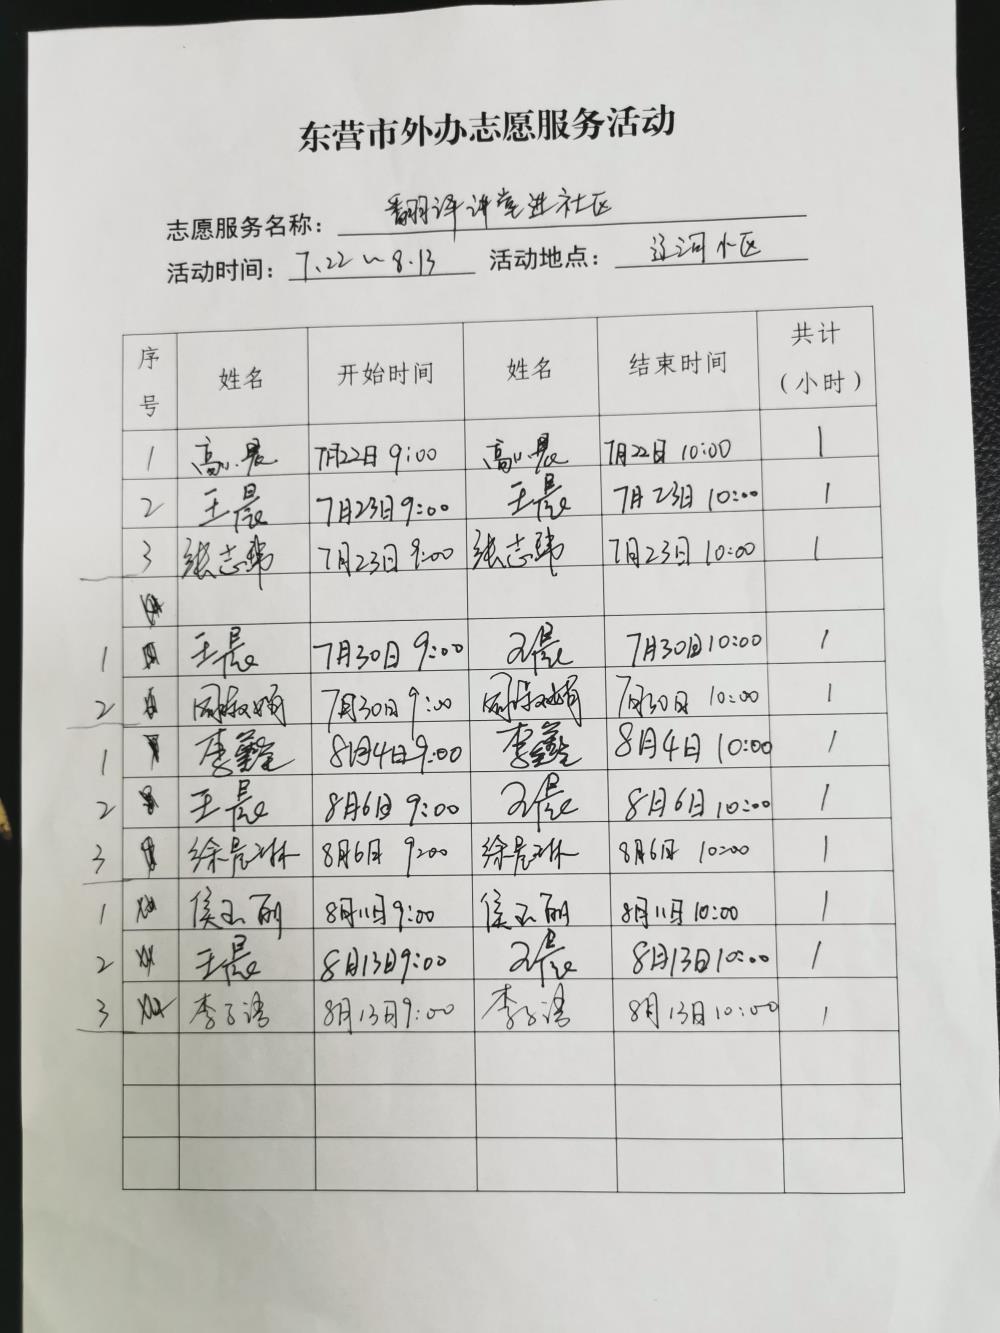 东营市外办志愿服务活动
志愿服务名称：翻译讲堂进社区
活动时间：7.22~8.13 活动地点：辽河小区
序号 姓名 开始时间 姓名 结束时间 共计（小时）
1 高小晨 7月22日 9:00 高小晨 7月22日 10:00 1
2 王晨 7月23日 9:00 王晨 7月23日 10:00 1
3 张志玮 7月23日 9:00 张志玮 7月23日 10:00 1
1 王晨 7月30日 9:00 王晨 7月30日 10:00 1
2 周淑娟 7月30日 9:00 周淑娟 7月30日 10:00 1
1 李 8月4日 9:00 李 8月4日 10:00 1
2 王晨 8月6日 9:00 王晨 8月6日 10:00 1
3 徐晨琳 8月6日 9:00 徐晨琳 8月6日 10:00 1
1 侯玉丽 8月11日 9:00 侯玉丽 8月11日 10:00 1
2 王晨 8月13日 9:00 王晨 8月13日 10:00 1
3 李子涛 8月13日 9:00 李子涛 8月13日 10:00 1